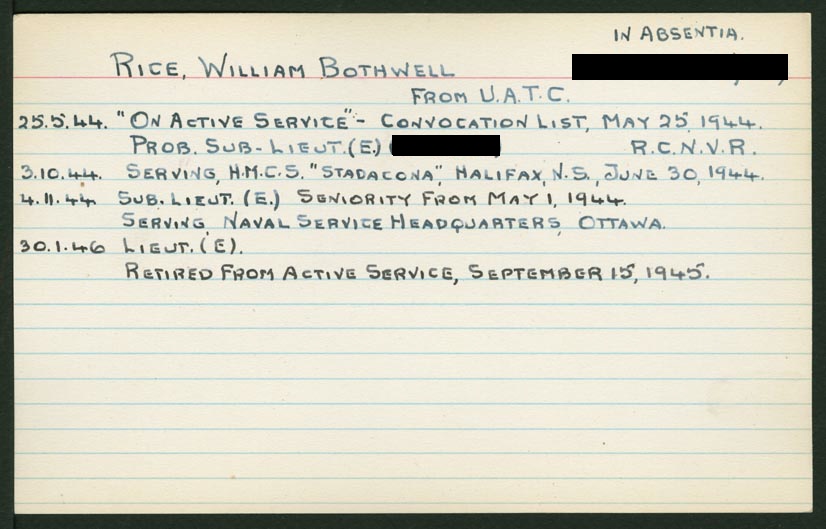 IN ABSENTIA.
RICE, WILLIAM BOTHWELL
FROM U.A.T.C.
25.5.44. "ON ACTIVE SERVICE" - CONVOCATION LIST, MAY 25, 1944.
PROB. SUB-LIEUT. (E.) R.C.N.V.R.
3.10.44. SERVING, H.M.C.S. "STADACONA", HALIFAX, N.S., JUNE 30, 1944.
4.11.44. SUB. LIEUT. (E.) SENIORITY FROM MAY 1, 1944.
SERVING, NAVAL SERVICE HEADQUARTERS, OTTAWA.
30.1.46 LIEUT. (E).
RETIRED FROM ACTIVE SERVICE, SEPTEMBER 15, 1945.